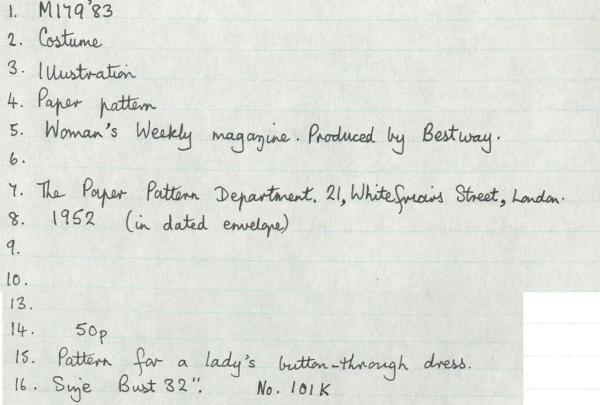 1. M179'83
2. Costume
3. Illustration
4. Paper pattern
5. Woman's Weekly magazine. Produced by Bestway.
6.
7. The Paper Pattern Department. 21, Whitefriars Street, London.
8. 1952 (in dated envelope)
9.
10.
13.
14. 50p
15. Pattern for a lady's button-through dress.
16. Size Bust 32". No. 101K